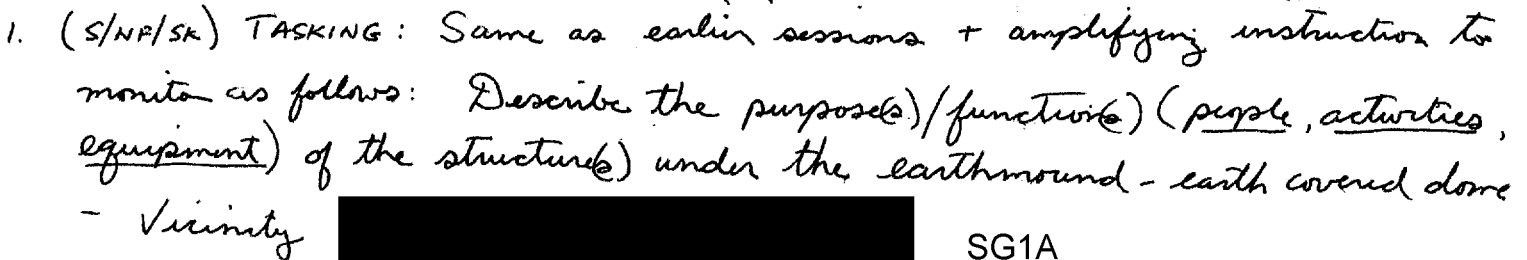 1. (S/NF/SK) TASKING: Same as earlier sessions + amplifying instruction to
monitor as follows: Describe the purpose(s)/function(s) (people, activities,
equipment) of the structure(s) under the earthmound - earth covered dome
- Vicinity SG1A